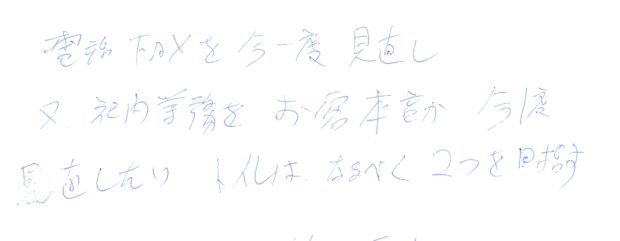 電話FAXを今一度見直し
又 社内業務を お客 今1度
見直したり トイレは なるべく 2つを目指す